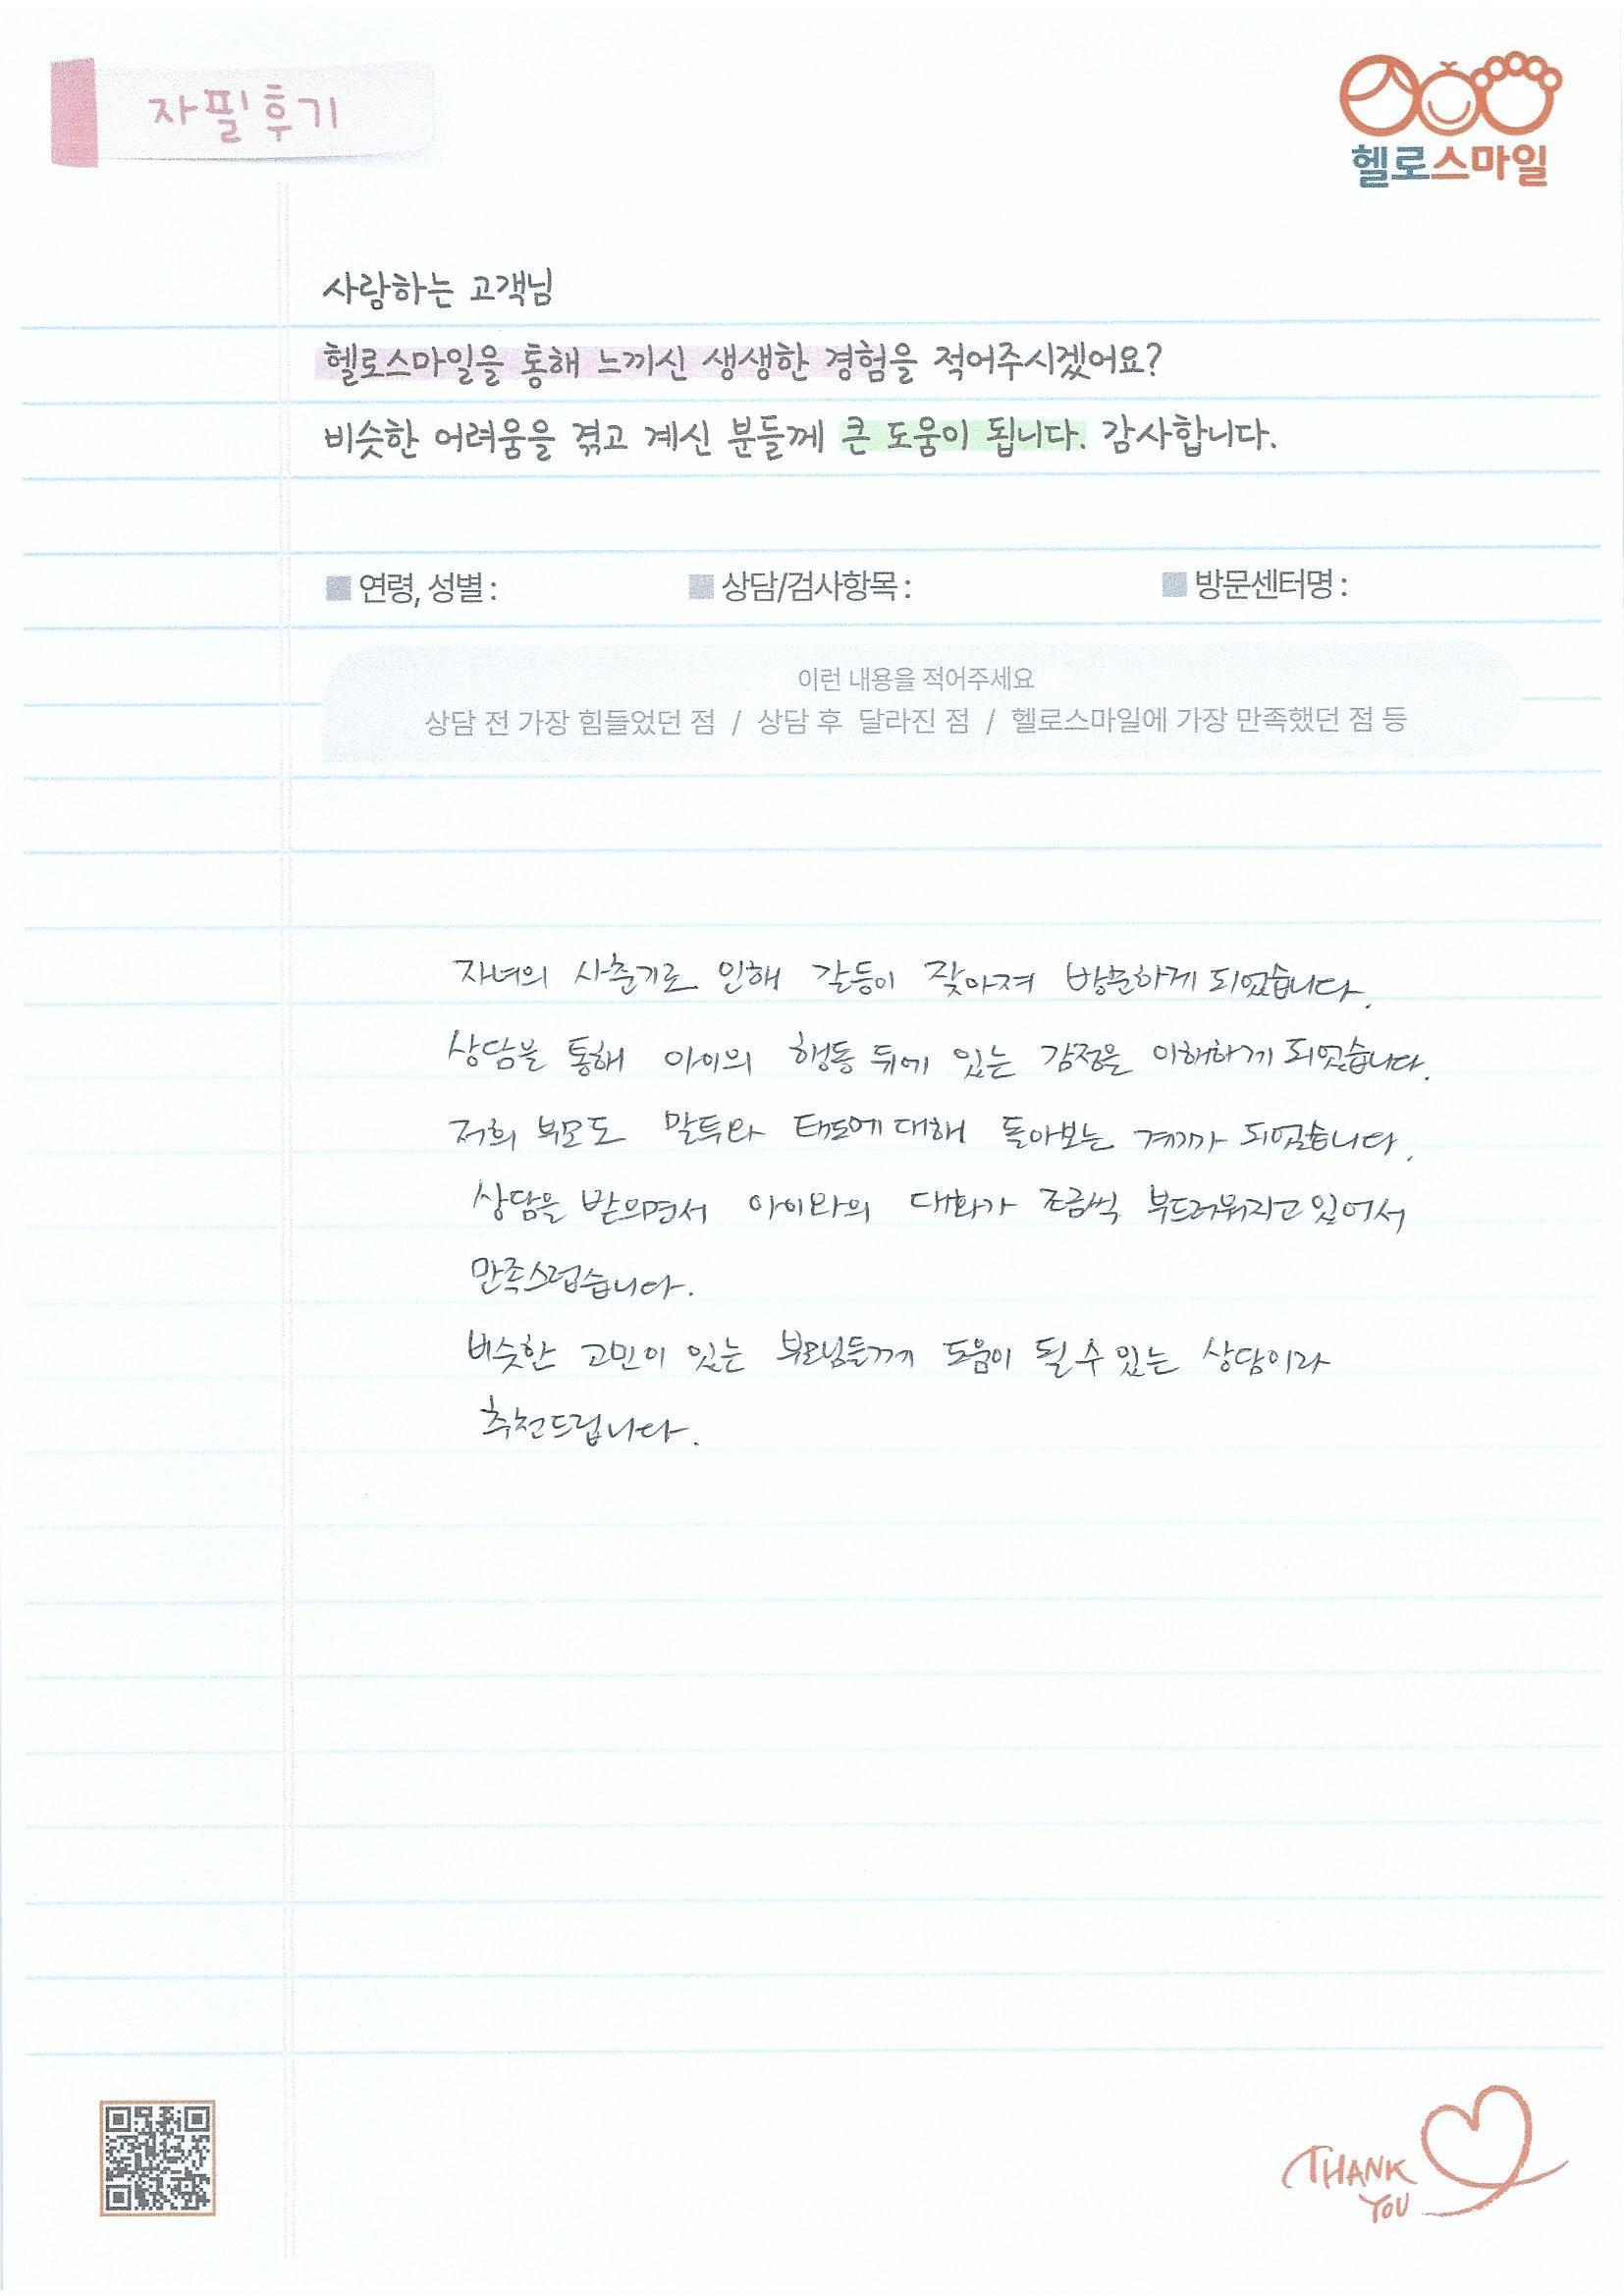 자필후기
헬로스마일
사랑하는 고객님
헬로스마일을 통해 느끼신 생생한 경험을 적어주시겠어요?
비슷한 어려움을 겪고 계신 분들께 큰 도움이 됩니다. 감사합니다.
연령, 성별 : 상담/검사항목 : 방문센터명 :
이런 내용을 적어주세요
상담 전 가장 힘들었던 점 / 상담 후 달라진 점 / 헬로스마일에 가장 만족했던 점 등
자녀의 사춘기로 인해 갈등이 잦아져 방문하게 되었습니다.
상담을 통해 아이의 행동 뒤에 있는 감정을 이해하게 되었습니다.
저희 부모도 말투와 태도에 대해 돌아보는 계기가 되었습니다.
상담을 받으면서 아이와의 대화가 조금씩 부드러워지고 있어서
만족스럽습니다.
비슷한 고민이 있는 부모님들께 도움이 될 수 있는 상담이라
추천드립니다.
THANK
YOU